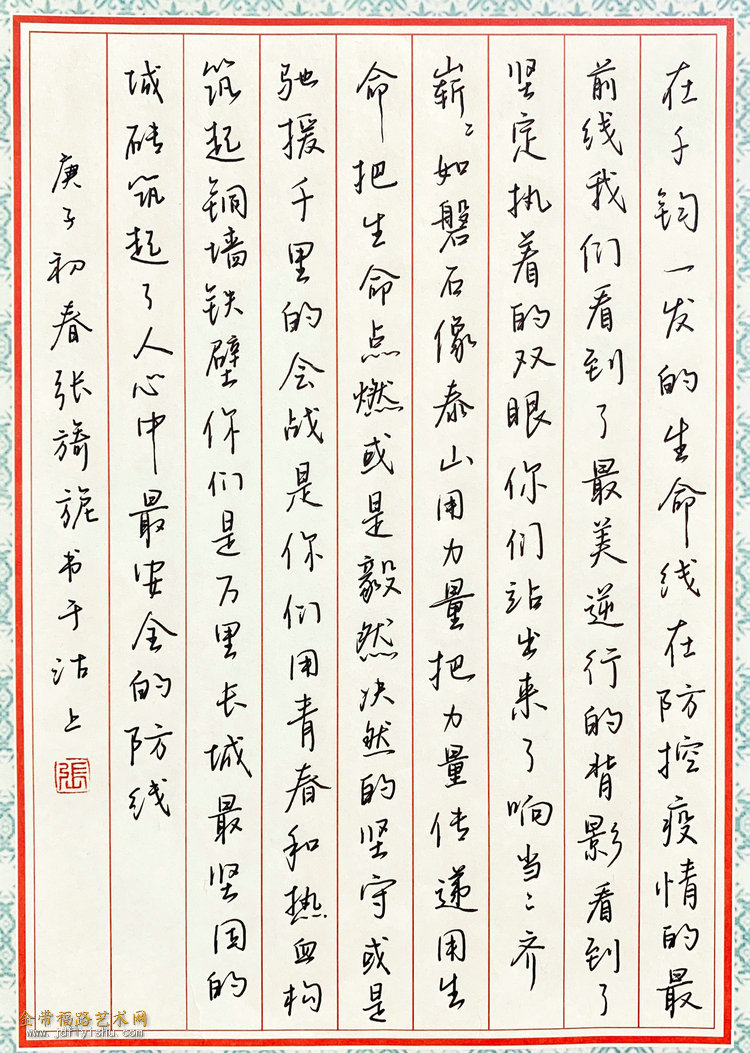 在千钧一发的生命线在防控疫情的最
前线我们看到了最美逆行的背影看到了
坚定执着的双眼你们站出来了响当〻齐
崭〻如磐石像泰山用力量把力量传递用生
命把生命点燃或是毅然决然的坚守或是
驰援千里的会战是你们用青春和热血构
筑起铜墙铁壁你们是万里长城最坚固的
城砖筑起了人心中最安全的防线
庚子初春张旖旎书于沽上
張
金带福路艺术网
www.jdflyishu.com